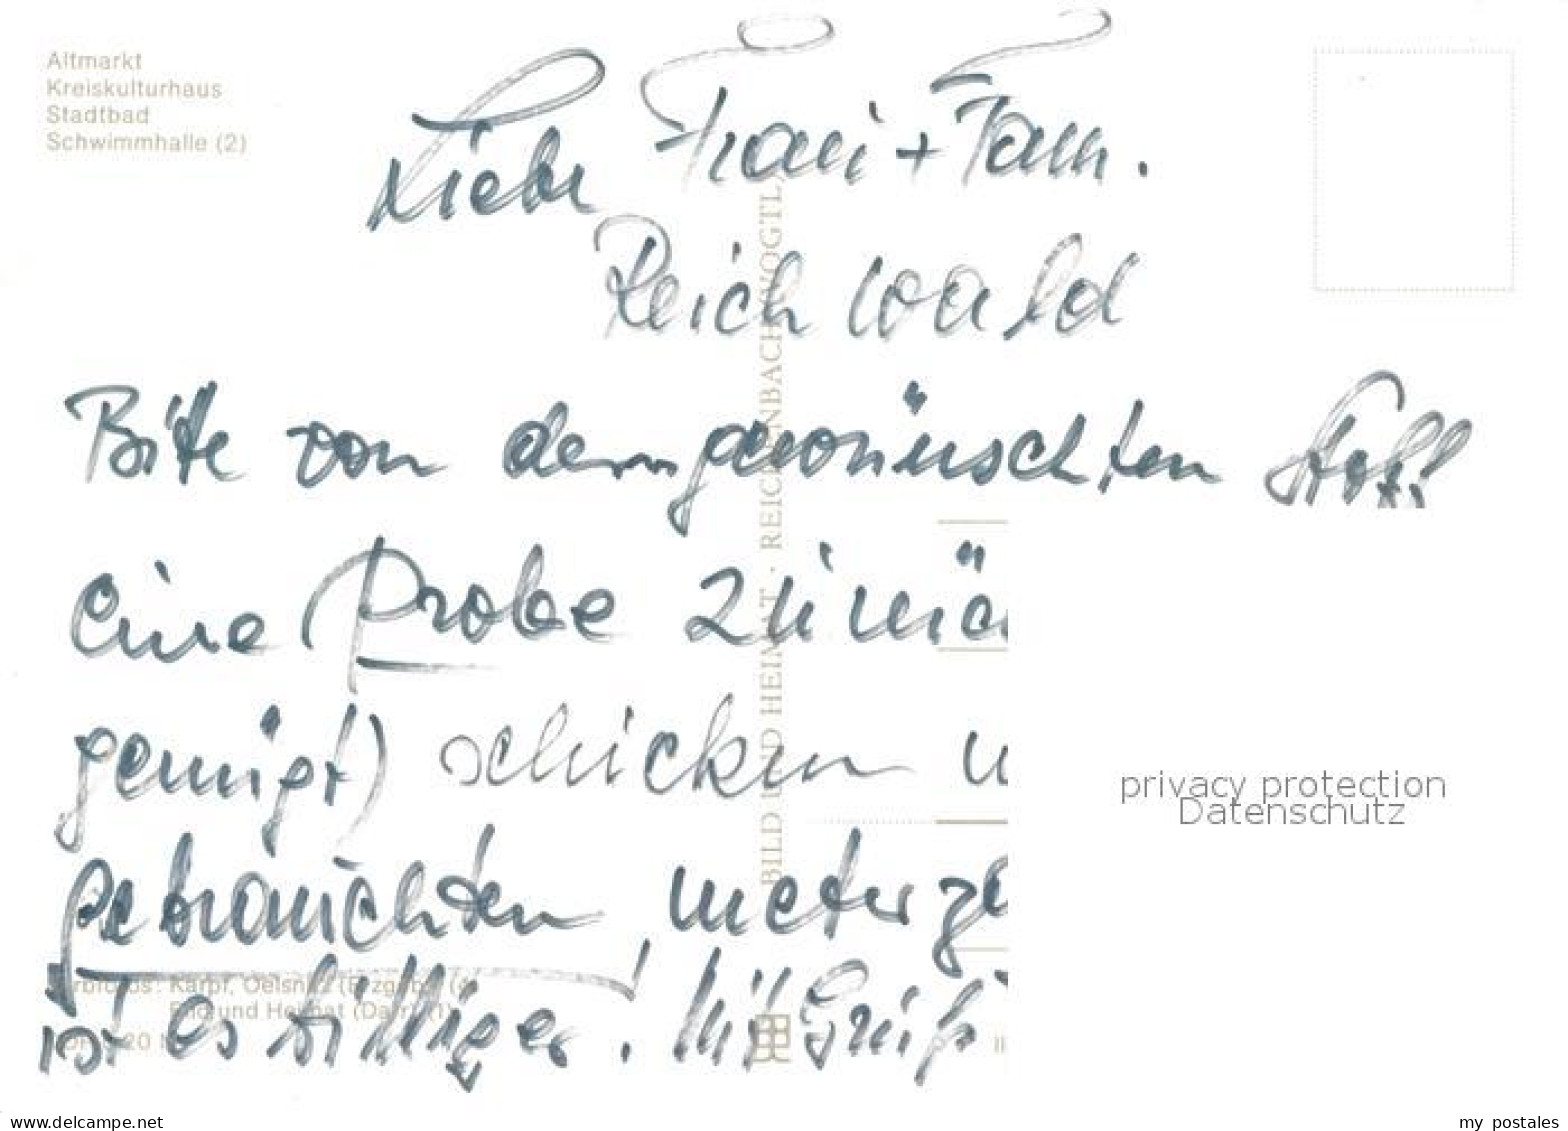 Altmarkt
Kreiskulturhaus
Stadtbad
Schwimmhalle (2)
Liebe Frau + Fam.
Reichwald
Bitte von dem gewünschten Stoff
eine Probe zurück
genügt) schicken u
gebrauchten meter
ist es billiger! Mit Gruß
BILD UND HEIMAT · REICHENBACH (VOGTL)
Farbfotos: Karpf, Oelsnitz (Erzgeb.) (4)
Bild und Heimat (Darr) (1)
privacy protection
Datenschutz
www.delcampe.net
my_postales